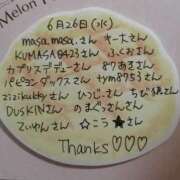 Melon
6月26日(水)
masa.masa.さん キー太さん
KUMASA8423さん ふくおさん
カプリスデデューさん 87あきさん
パピヨンダックスさん tym8753さん
zizikubbyさん ひつじーさん ちび
DUSKINさん のまぐっさんさん
てぃゆんさん ☆こう★さん
Thanks♡♡♡